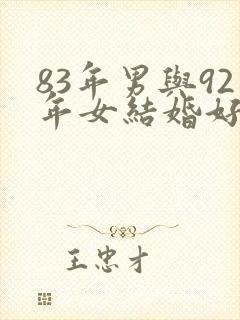 83年男與92
年女結婚好
王忠才